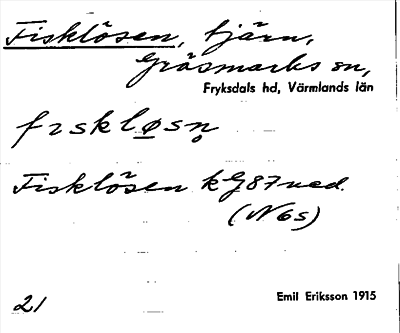 Fisklösen, tjärn,
Gräsmarks sn,
Fryksdals hd, Värmlands län
fɪskløsn̥
Fisklösen k G87 ned.
(N6s)
21
Emil Eriksson 1915